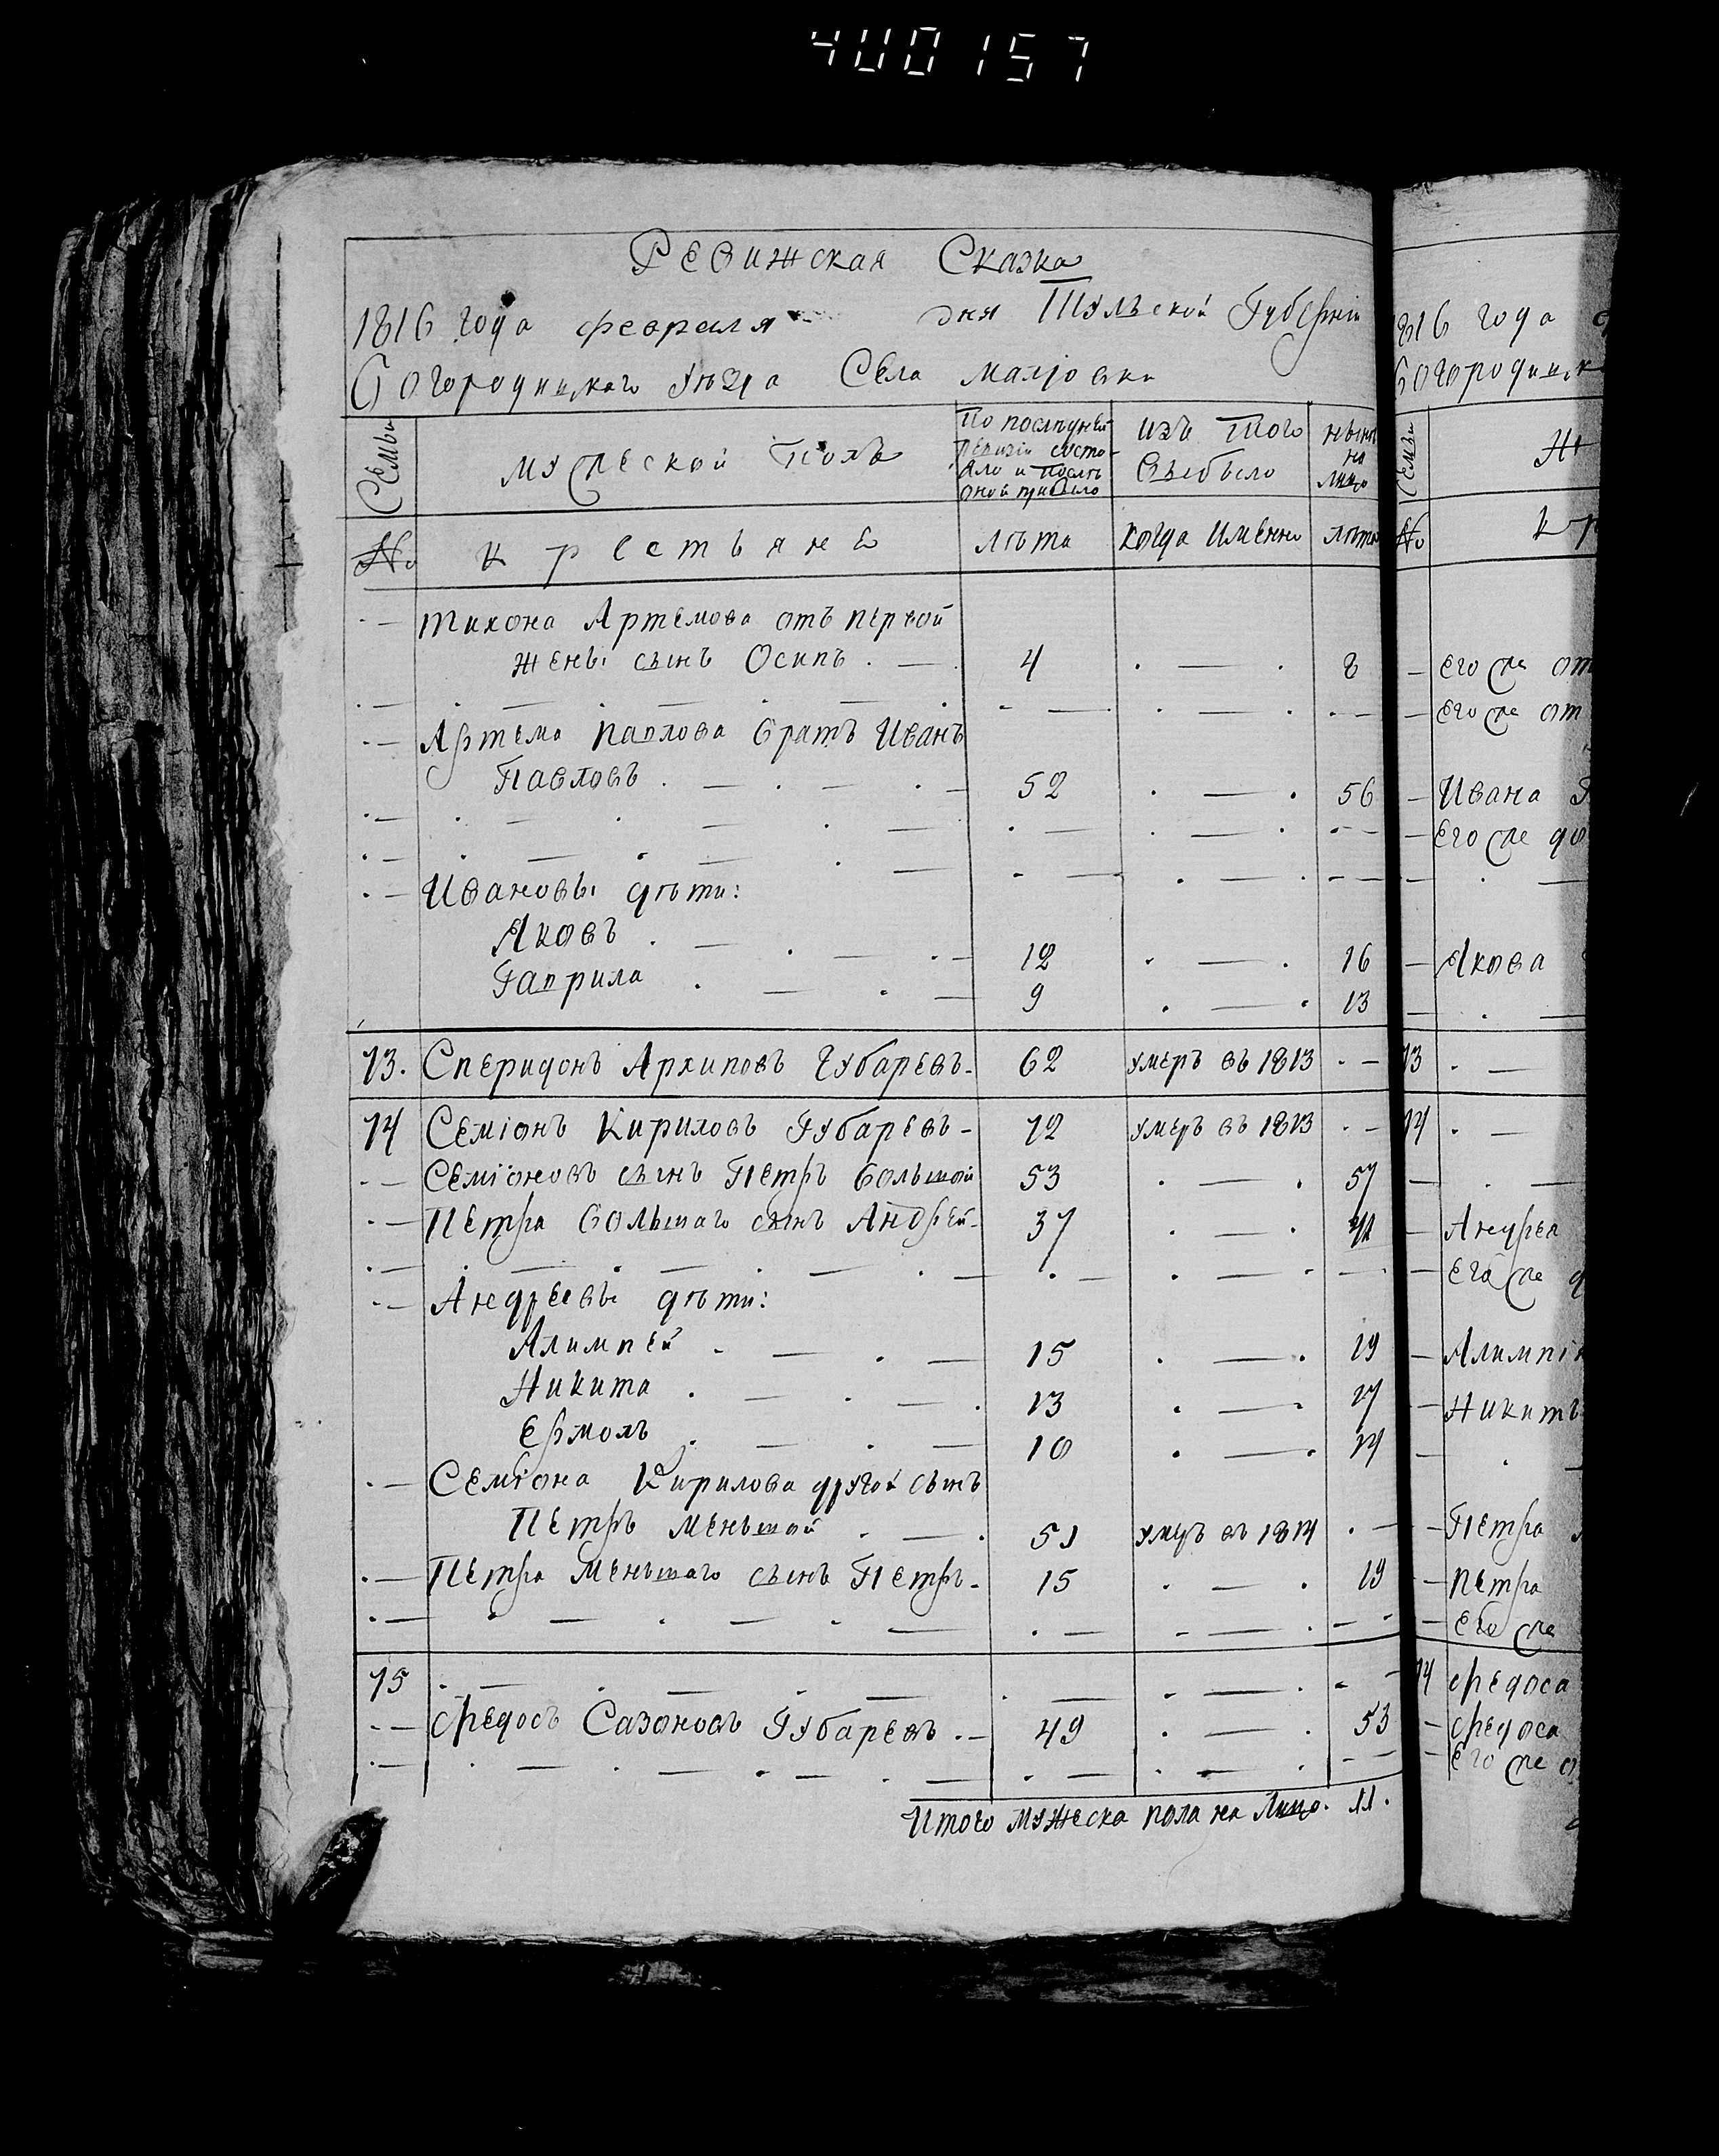 400157
Ревижская Сказка
1816 года февраля дня Тульской Губерніи
Богородицкаго Уъзда Села малювки
Семьи
мужеской Полъ
По последней ревизіи состояло и послъ оной прибыло
изъ того Выбыло
нынъ на лицо
№ крестьяне лъта когда Именно лъта
Тихона Артемова отъ первой
жены сынъ Осипъ . — 4 . — . 8
Артема Павлова братъ Иванъ
Павловъ . — . — . — 52 . — . 56
Ивановы дъти:
Яковъ . — . — . — 12 . — . 16
Гаврила . — . — 9 . — . 13
13. Сперидонъ Архиповъ Губаревъ - 62 умеръ въ 1813 . —
14 Семіонъ Кириловъ Губаревъ - 72 умеръ въ 1813 . —
. — Семіоновъ сынъ Петръ большой 53 . — . 57
. — Петра большаго сынъ Андрей - 37 . — . 41
. — Андреевы дъти:
Алимпей . — . — 15 . — . 19
Никита . — . — . 13 . — . 17
Ермолъ . — . — 10 . — . 14
. — Семіона Кирилова другой сынъ
Петръ меньшой . — . 51 умеръ въ 1814 . —
. — Петра меньшаго сынъ Петръ - 15 . — . 19
15
. — Федосъ Сазоновъ Губаревъ . — 49 . — . 53
Итого мужеска пола на Лицо. 11.
1816 года
Богородицк
Семьи
№ Кр
— Его же от
— Его же от
— Ивана
— Его же до
— Якова
13 . —
14 . —
— Андрея
— Его же д
— Алимпія
— Никитъ
— Петра
— Петра
— Его же
14 Федоса
— Федоса
— Его же